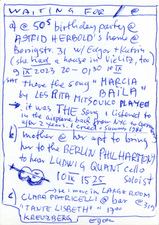 WAITING FOR /
a) @ 50s birthday party @
ASTRID HERBOLD's home @
Bönigstr. 31 w/ Edgar + Katrin
(she had a house in Vielitz, too)
9 IX 2023 20 – 0:30 10 IX
SAT those the song "MARCIA
BAÏLA" by LES RITA MITSOUKO played
it was THE song I listened to
in the airplane back from NYC to
after 2 years I cried – summer 1986
b) mother @ her apt to bring
her to the BERLIN PHILHARMONY
to hear LUDWIG QUANT cello
10 IX 1525 soloist
time in LARGE ROOM
c) CLARA PATRICELLI @ bar @
"TANTE LISBETH" 1900
KREUZBERG